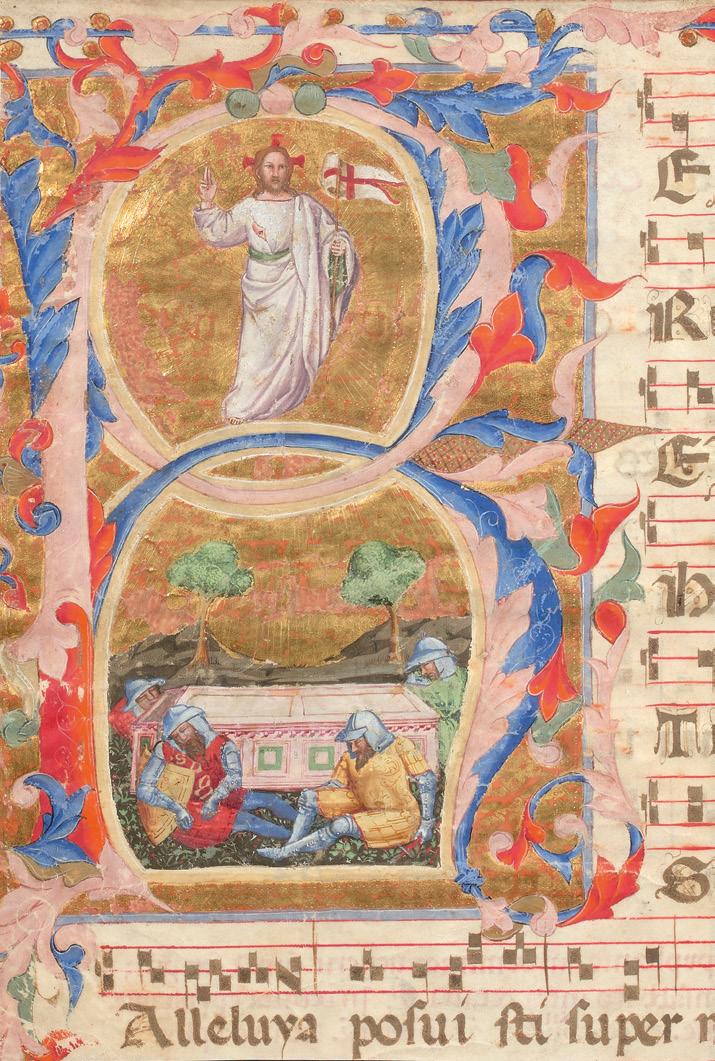 E
R
E
h
T
S
Alleluya posui sti super